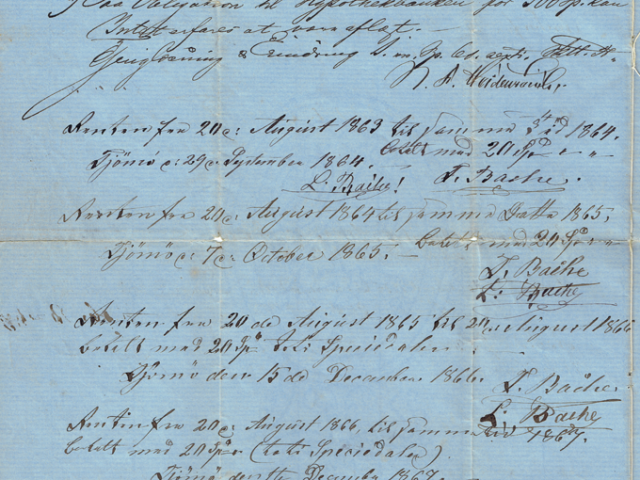 Obligation til Hypothekbanken for 500 Sp. kan
Intet erfares at være aflæst.
N. A.
Renten fra 20de August 1863 til samme Tid 1864.
betalt med 20 Spd
Tjömö d: 29de September 1864.
L. Bache! T. Bache.
Renten fra 20de August 1864 til samme Datto 1865,
betalt med 20 Spd
Tjömö d: 7de October 1865.
T. Bache
L. Bache
Renten fra 20de August 1865 til 20de August 1866
betalt med 20 Spd Speciedaler
Tjömö den 15de December 1866.
T. Bache
L. Bache
Renten fra 20de August 1866 til samme Tid 1867.
betalt med 20 Spd ( Speciedaler)
Tjömö den December 1867.